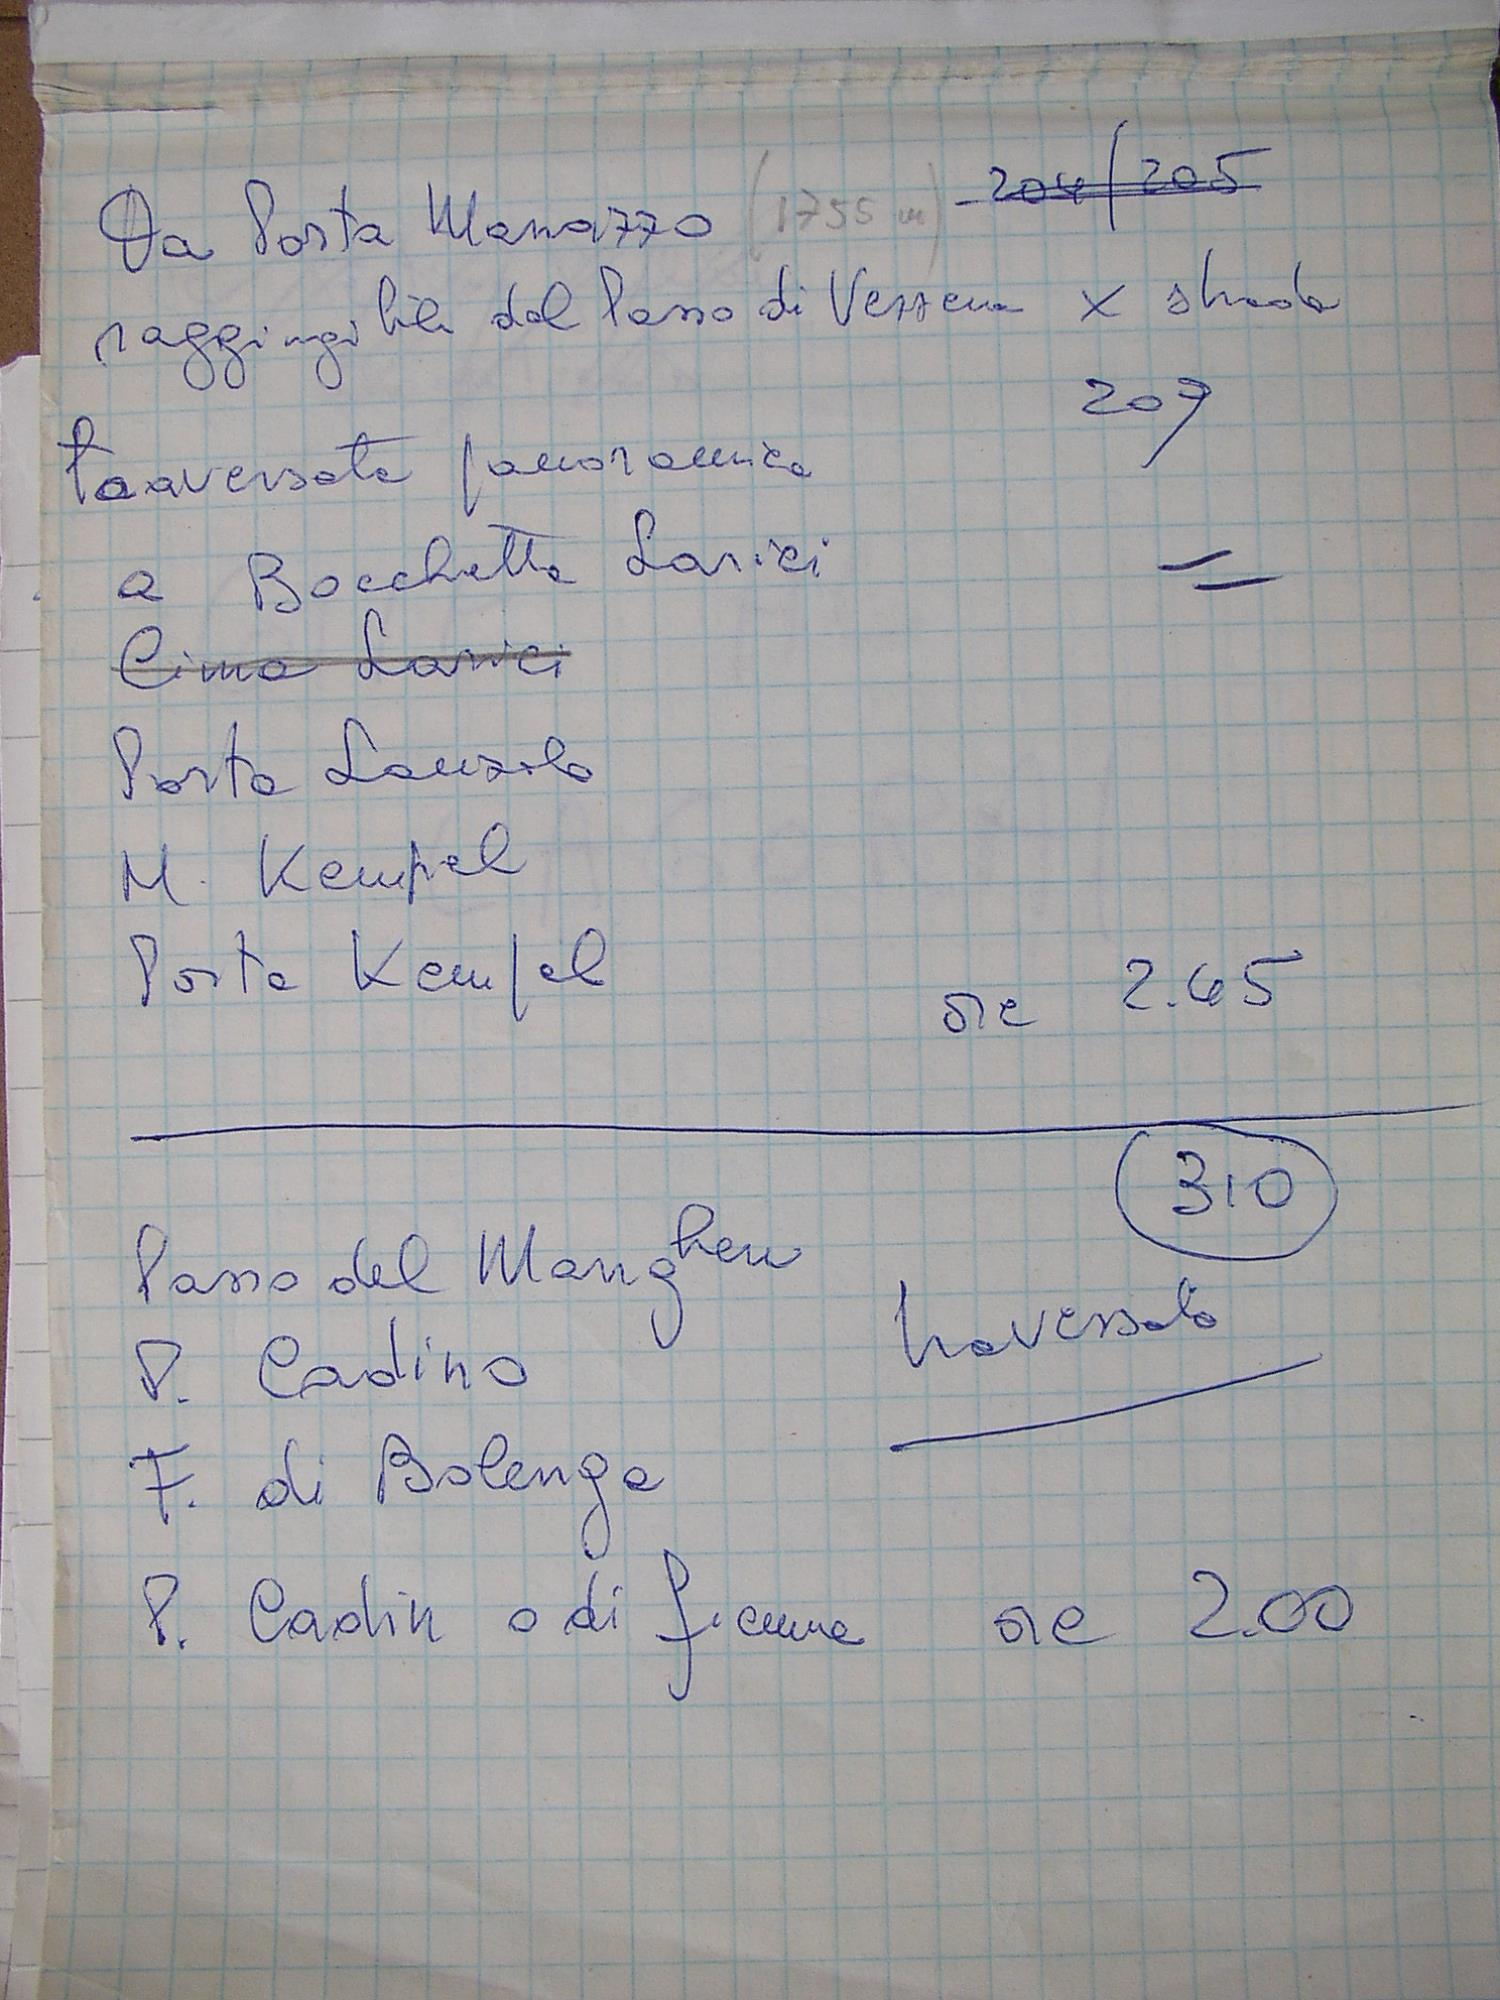 Da Porta Manazzo (1755 m) 204/205
raggingibile dal Passo di Vezzena x strada
207
traversata panoramica
a Bocchetta Larici
Cima Larici
Porta Lanzola
M. Kempel
Porta Kempel
ore 2.45
310
Passo del Manghen
traversata
P. Cadino
F. di Bolenga
P. Cadin o di fiemme ore 2.00